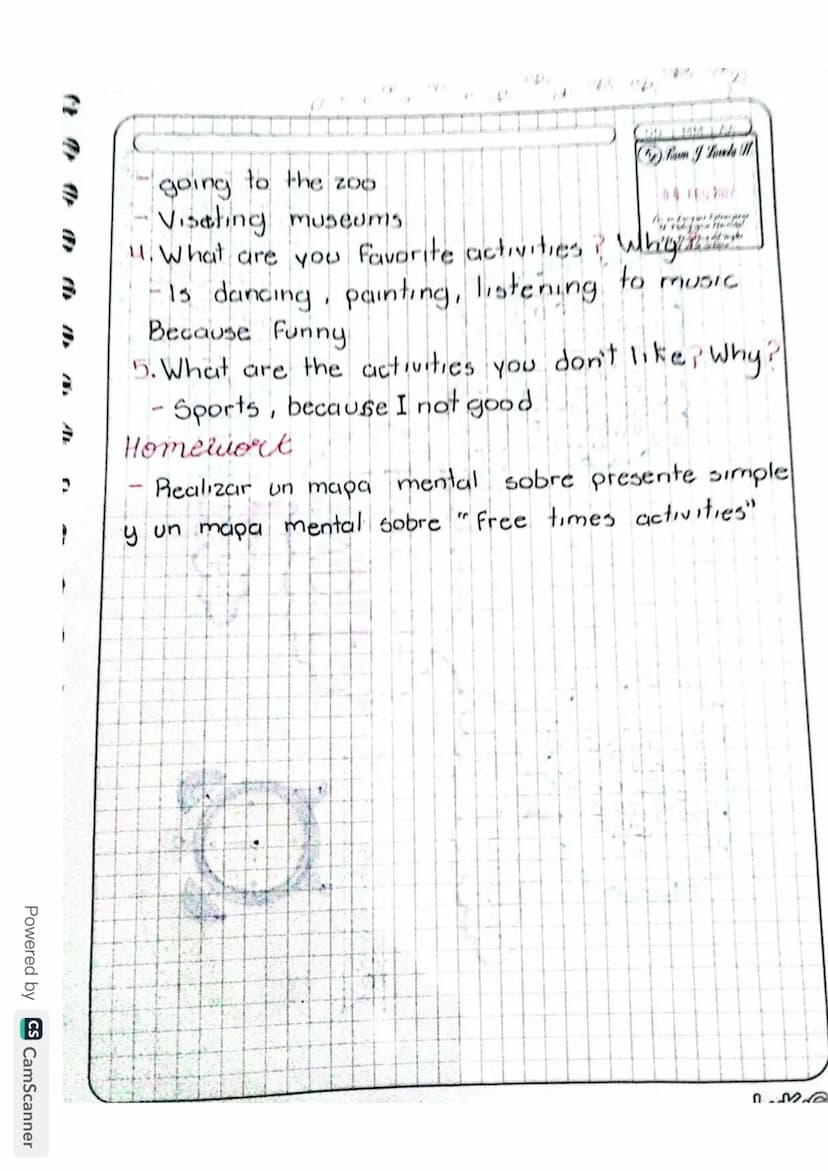 - going to the zoo
- Viseting museums
4. What are you favorite activities? Why?
- Is dancing, painting, listening to music
Because funny
5. What are the activities you don't like? Why?
- Sports, because I not good
Homework
- Realizar un mapa mental sobre presente simple
y un mapa mental sobre "free times activities"
Powered by CS CamScanner